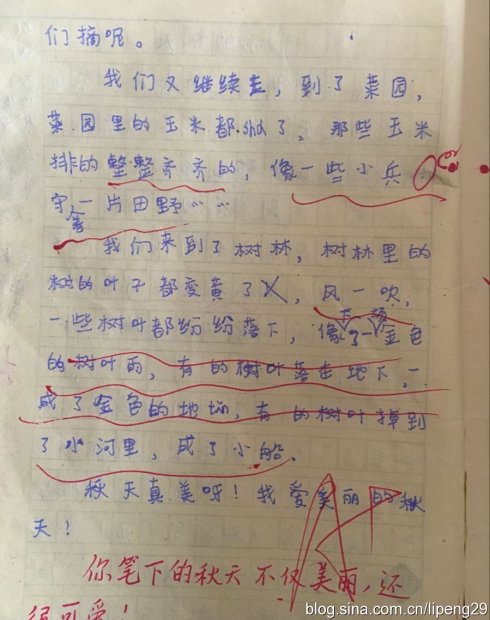 们摘呢。
我们又继续走，到了菜园，
菜园里的玉米都shú了，那些玉米
排的整整齐齐的，像一些小兵
守着一片田野……
我们来到了树林，树林里的
树的叶子都变黄了，风一吹，
一些树叶都纷纷落下，像下了一场金色
的树叶雨，有的树叶落在地下，
成了金色的地毯，有的树叶掉到
了小河里，成了小船。
秋天真美呀！我爱美丽的秋
天！
你笔下的秋天不仅美丽，还
很可爱！
blog.sina.com.cn/lipeng29